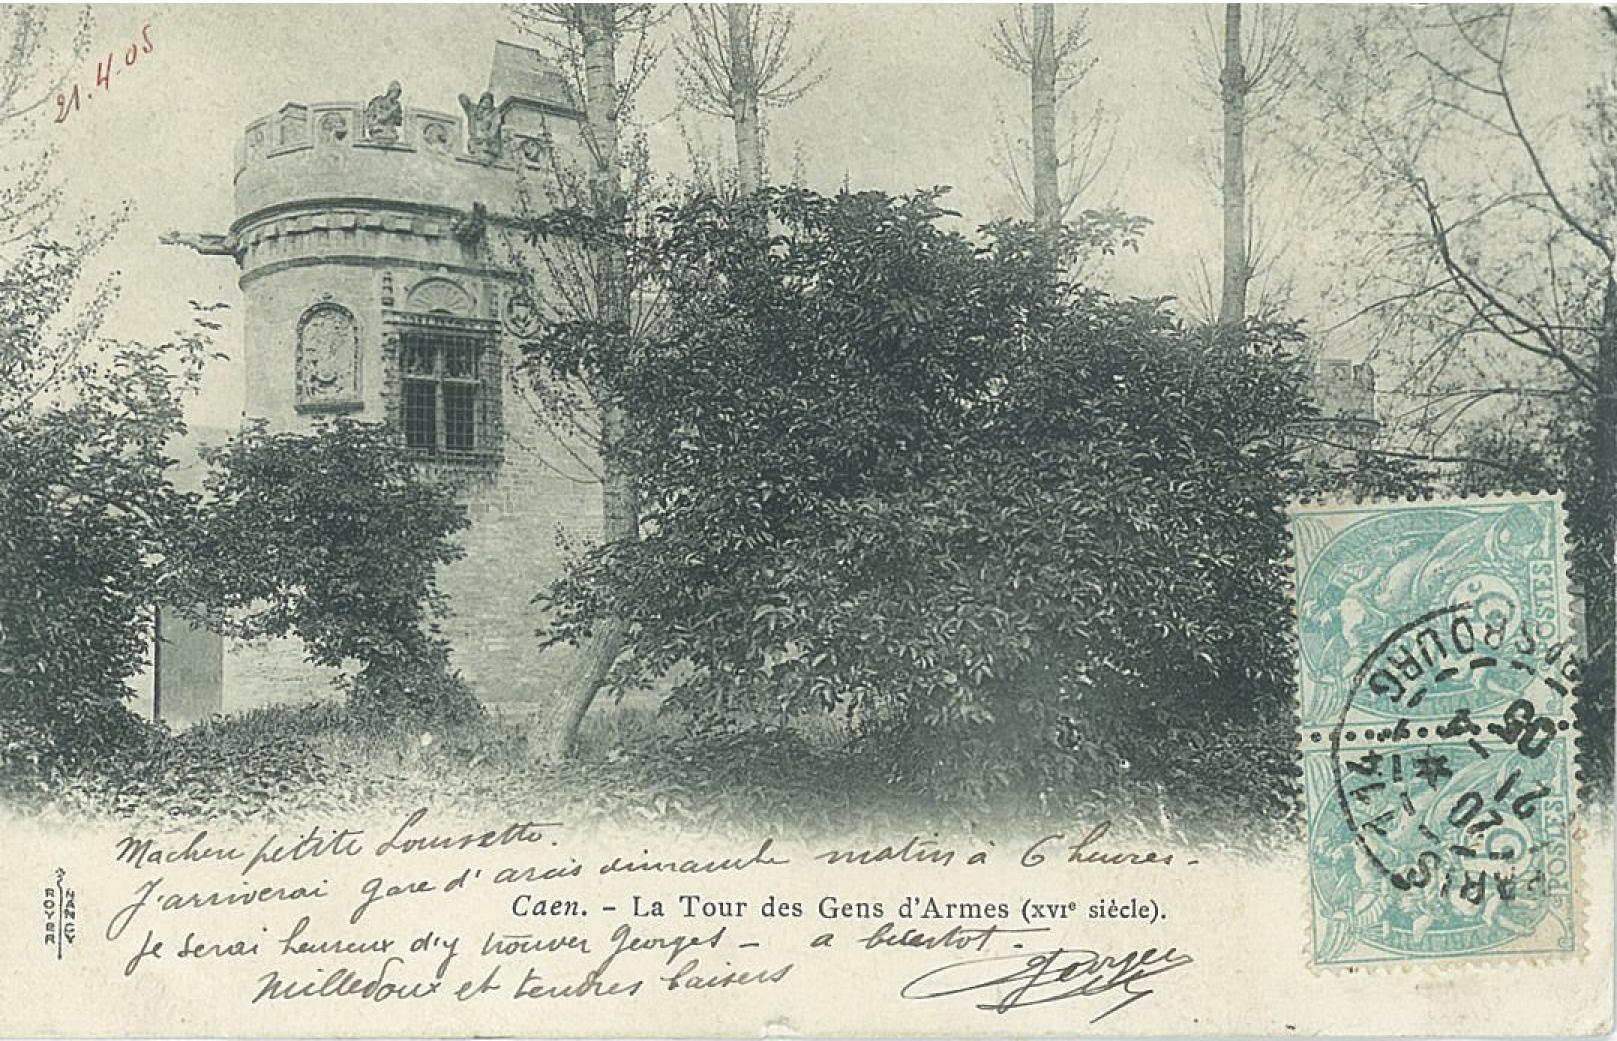 21.4.05
Ma chere petite Lousette.
J'arriverai gare d' dimanche matin à 6 heures -
Caen. – La Tour des Gens d'Armes (XVIe siècle).
je serai heureux d'y trouver Georges – a bientot.
Mille doux et tendres baisers
ROYER
NANCY
POSTES
POSTES
PARIS 114
21 - 4
05